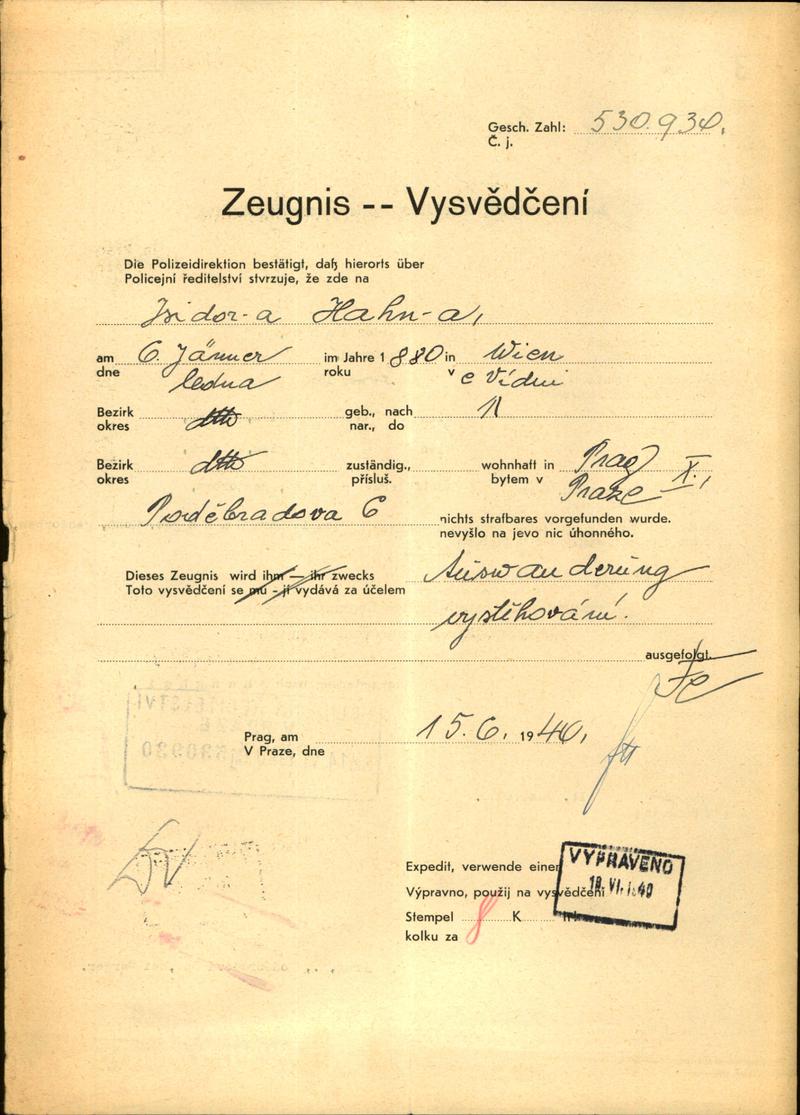 Gesch. Zahl: 530.930.
Č. j.
Zeugnis -- Vysvědčení
Die Polizeidirektion bestätigt, daß hierorts über
Policejní ředitelství stvrzuje, že zde na
Isidor-a Hahn-a,
am 6. Jänner im Jahre 1880 in Wien
dne ledna roku v e Vídni
Bezirk dtto geb., nach
okres nar., do
Bezirk dtto zuständig., wohnhaft in Prag
okres přísluš. bytem v Praze X.,
Poděbradova 6 nichts strafbares vorgefunden wurde.
nevyšlo na jevo nic úhonného.
Dieses Zeugnis wird ihm — ihr zwecks Auswanderung
Toto vysvědčení se mu - jí vydává za účelem
vystěhování.
ausgefolgt.
Prag, am 15.6. 1940,
V Praze, dne
Expedit, verwende einen
Výpravno, použij na vysvědčení
Stempel 8 K
kolku za
VYPRAVENO
18. VI. 1940